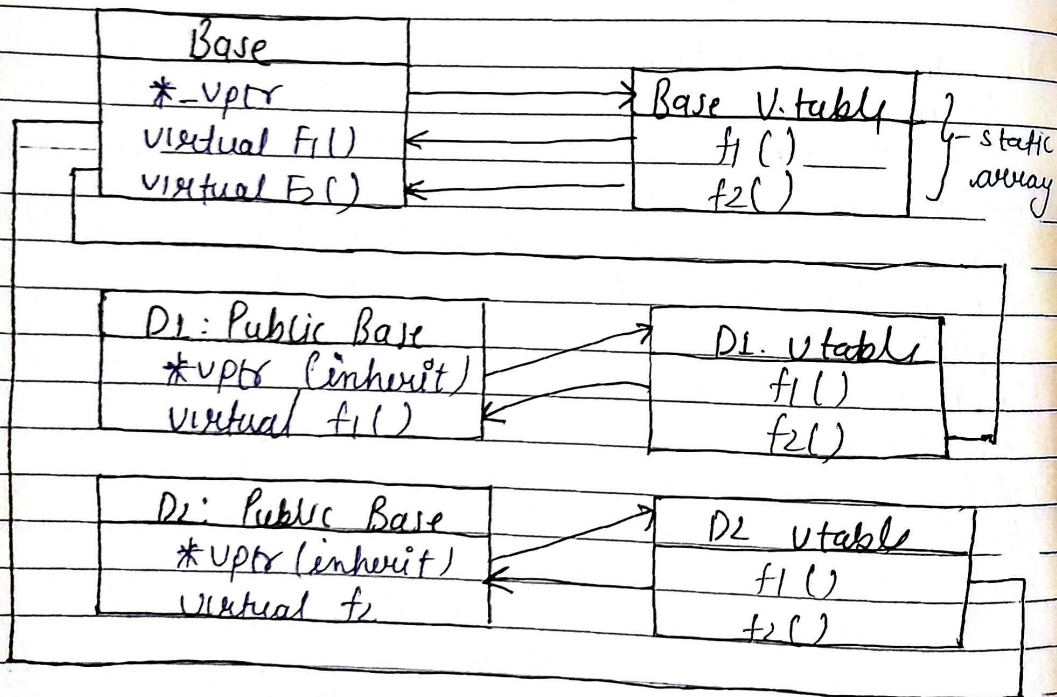 Base
*_vptr
virtual F1()
virtual F2()
Base V.table
f1 ()
f2()
static
array
D1: Public Base
*vptr (inherit)
virtual f1()
D1. vtable
f1()
f2()
D2: Public Base
*vptr (inherit)
virtual f2
D2 vtable
f1()
f2()